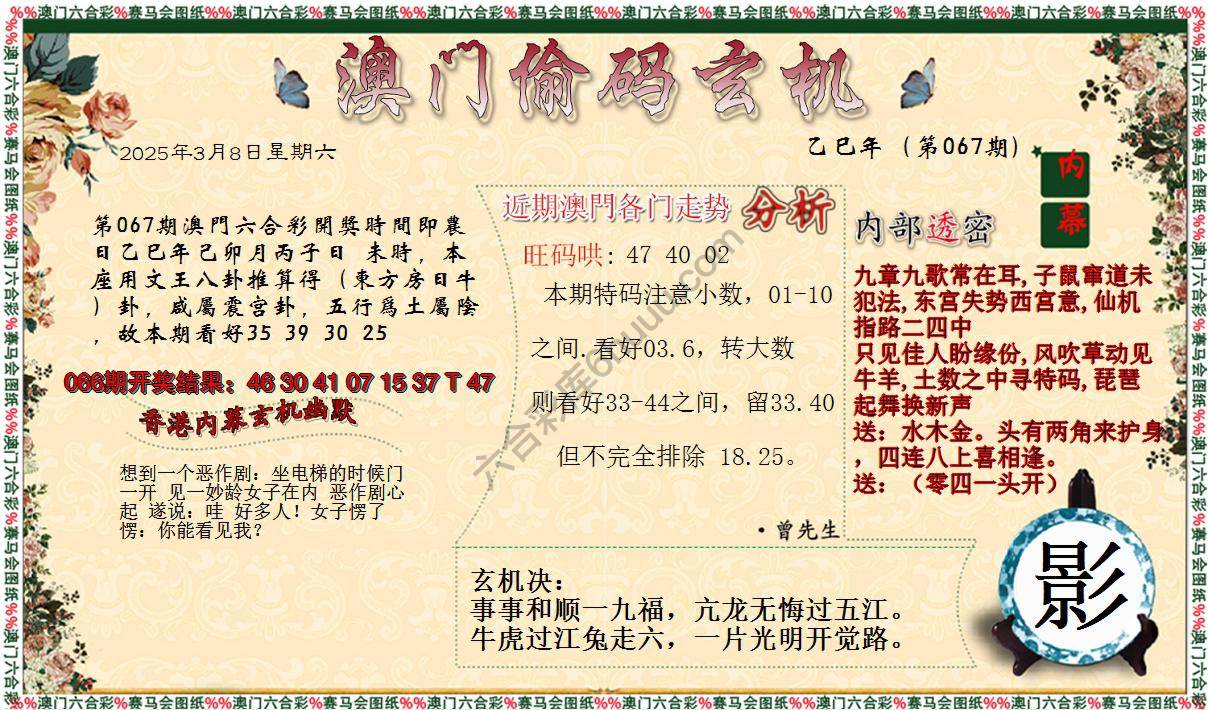 %%澳门六合彩%赛马会图纸%%澳门六合彩%赛马会图纸%%澳门六合彩%赛马会图纸%%澳门六合彩%赛马会图纸%%澳门六合彩%赛马会图纸%%澳门六合彩%赛马会图纸%%
澳门偷码玄机
2025年3月8日星期六
乙巳年（第067期）
内幕
第067期澳門六合彩開獎時間即農
日乙巳年己卯月丙子日 未時，本
座用文王八卦推算得（東方房日牛
）卦，咸屬震宫卦，五行爲土屬陰
，故本期看好35 39 30 25
066期开奖结果：46 30 41 07 15 37 T 47
香港内幕玄机幽默
想到一个恶作剧：坐电梯的时候门
一开 见一妙龄女子在内 恶作剧心
起 遂说：哇 好多人！女子愣了
愣：你能看见我？
近期澳門各门走势 分析
旺码哄：47 40 02
本期特码注意小数，01-10
之间.看好03.6，转大数
则看好33-44之间，留33.40
但不完全排除 18.25。
·曾先生
内部透密
九章九歌常在耳,子鼠窜道未
犯法,东宫失势西宫意,仙机
指路二四中
只见佳人盼缘份,风吹草动见
牛羊,土数之中寻特码,琵琶
起舞换新声
送：水木金。头有两角来护身
，四连八上喜相逢。
送：（零四一头开）
玄机决：
事事和顺一九福，亢龙无悔过五江。
牛虎过江兔走六，一片光明开觉路。
影